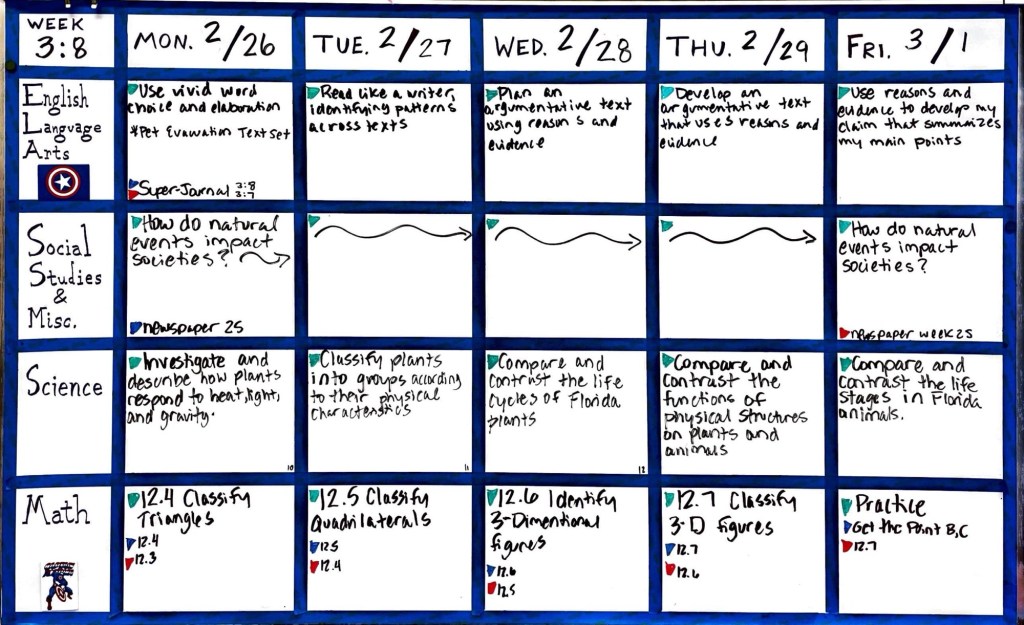 WEEK
3:8
MON. 2/26
TUE. 2/27
WED. 2/28
THU. 2/29
FRI. 3/1
English
Language
Arts
Use vivid word
choice and elaboration
*Pet Evauation Text set
Super-Journal 3:8
3:7
Read like a writer,
identifying patterns
across texts
Plan an
argumentative text
using reasons and
evidence
Develop an
argumentative text
that uses reasons and
evidence
Use reasons and
evidence to develop my
claim that summarizes
my main points
Social
Studies
&
Misc.
How do natural
events impact
societies?
newspaper 25
How do natural
events impact
societies?
newspaper week 25
Science
Investigate and
describe how plants
respond to heat, light,
and gravity.
10
Classify plants
into groups according
to their physical
characteristics
11
Compare and
contrast the life
cycles of Florida
plants
12
Compare and
contrast the
functions of
physical structures
on plants and
animals
Compare and
contrast the life
stages in Florida
animals.
Math
12.4 Classify
Triangles
12.4
12.3
12.5 Classify
Quadrilaterals
12.5
12.4
12.6 Identify
3-Dimentional
figures
12.6
12.5
12.7 Classify
3-D figures
12.7
12.6
Practice
Get the Point B,C
12.7